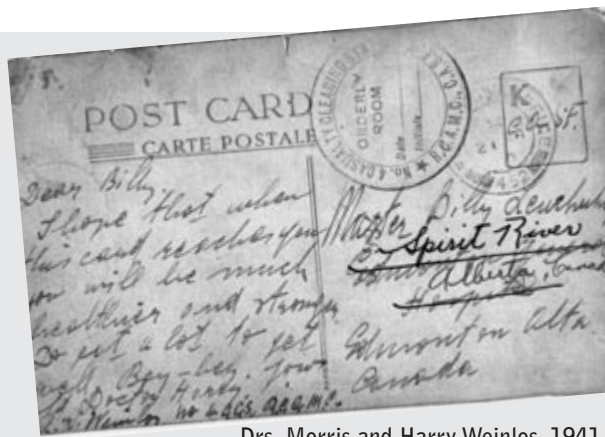 POST CARD
CARTE POSTALE
No. 4 CASUALTY CLEARING
R.C.A.M.C., C.A.S.F.
ORDERLY
ROOM
Date
Initials
Dear Billy
I hope that when
this card reaches you
you will be much
healthier and stronger
Do eat a lot to get
well Boy-boy.
Doctor Harry.
Weinlos no 4 CCS. RCAMC.
Master Billy
Spirit River
Alberta, Canada
Hospital
Edmonton Alta.
Canada
Drs. Morris and Harry Weinlos, 1941